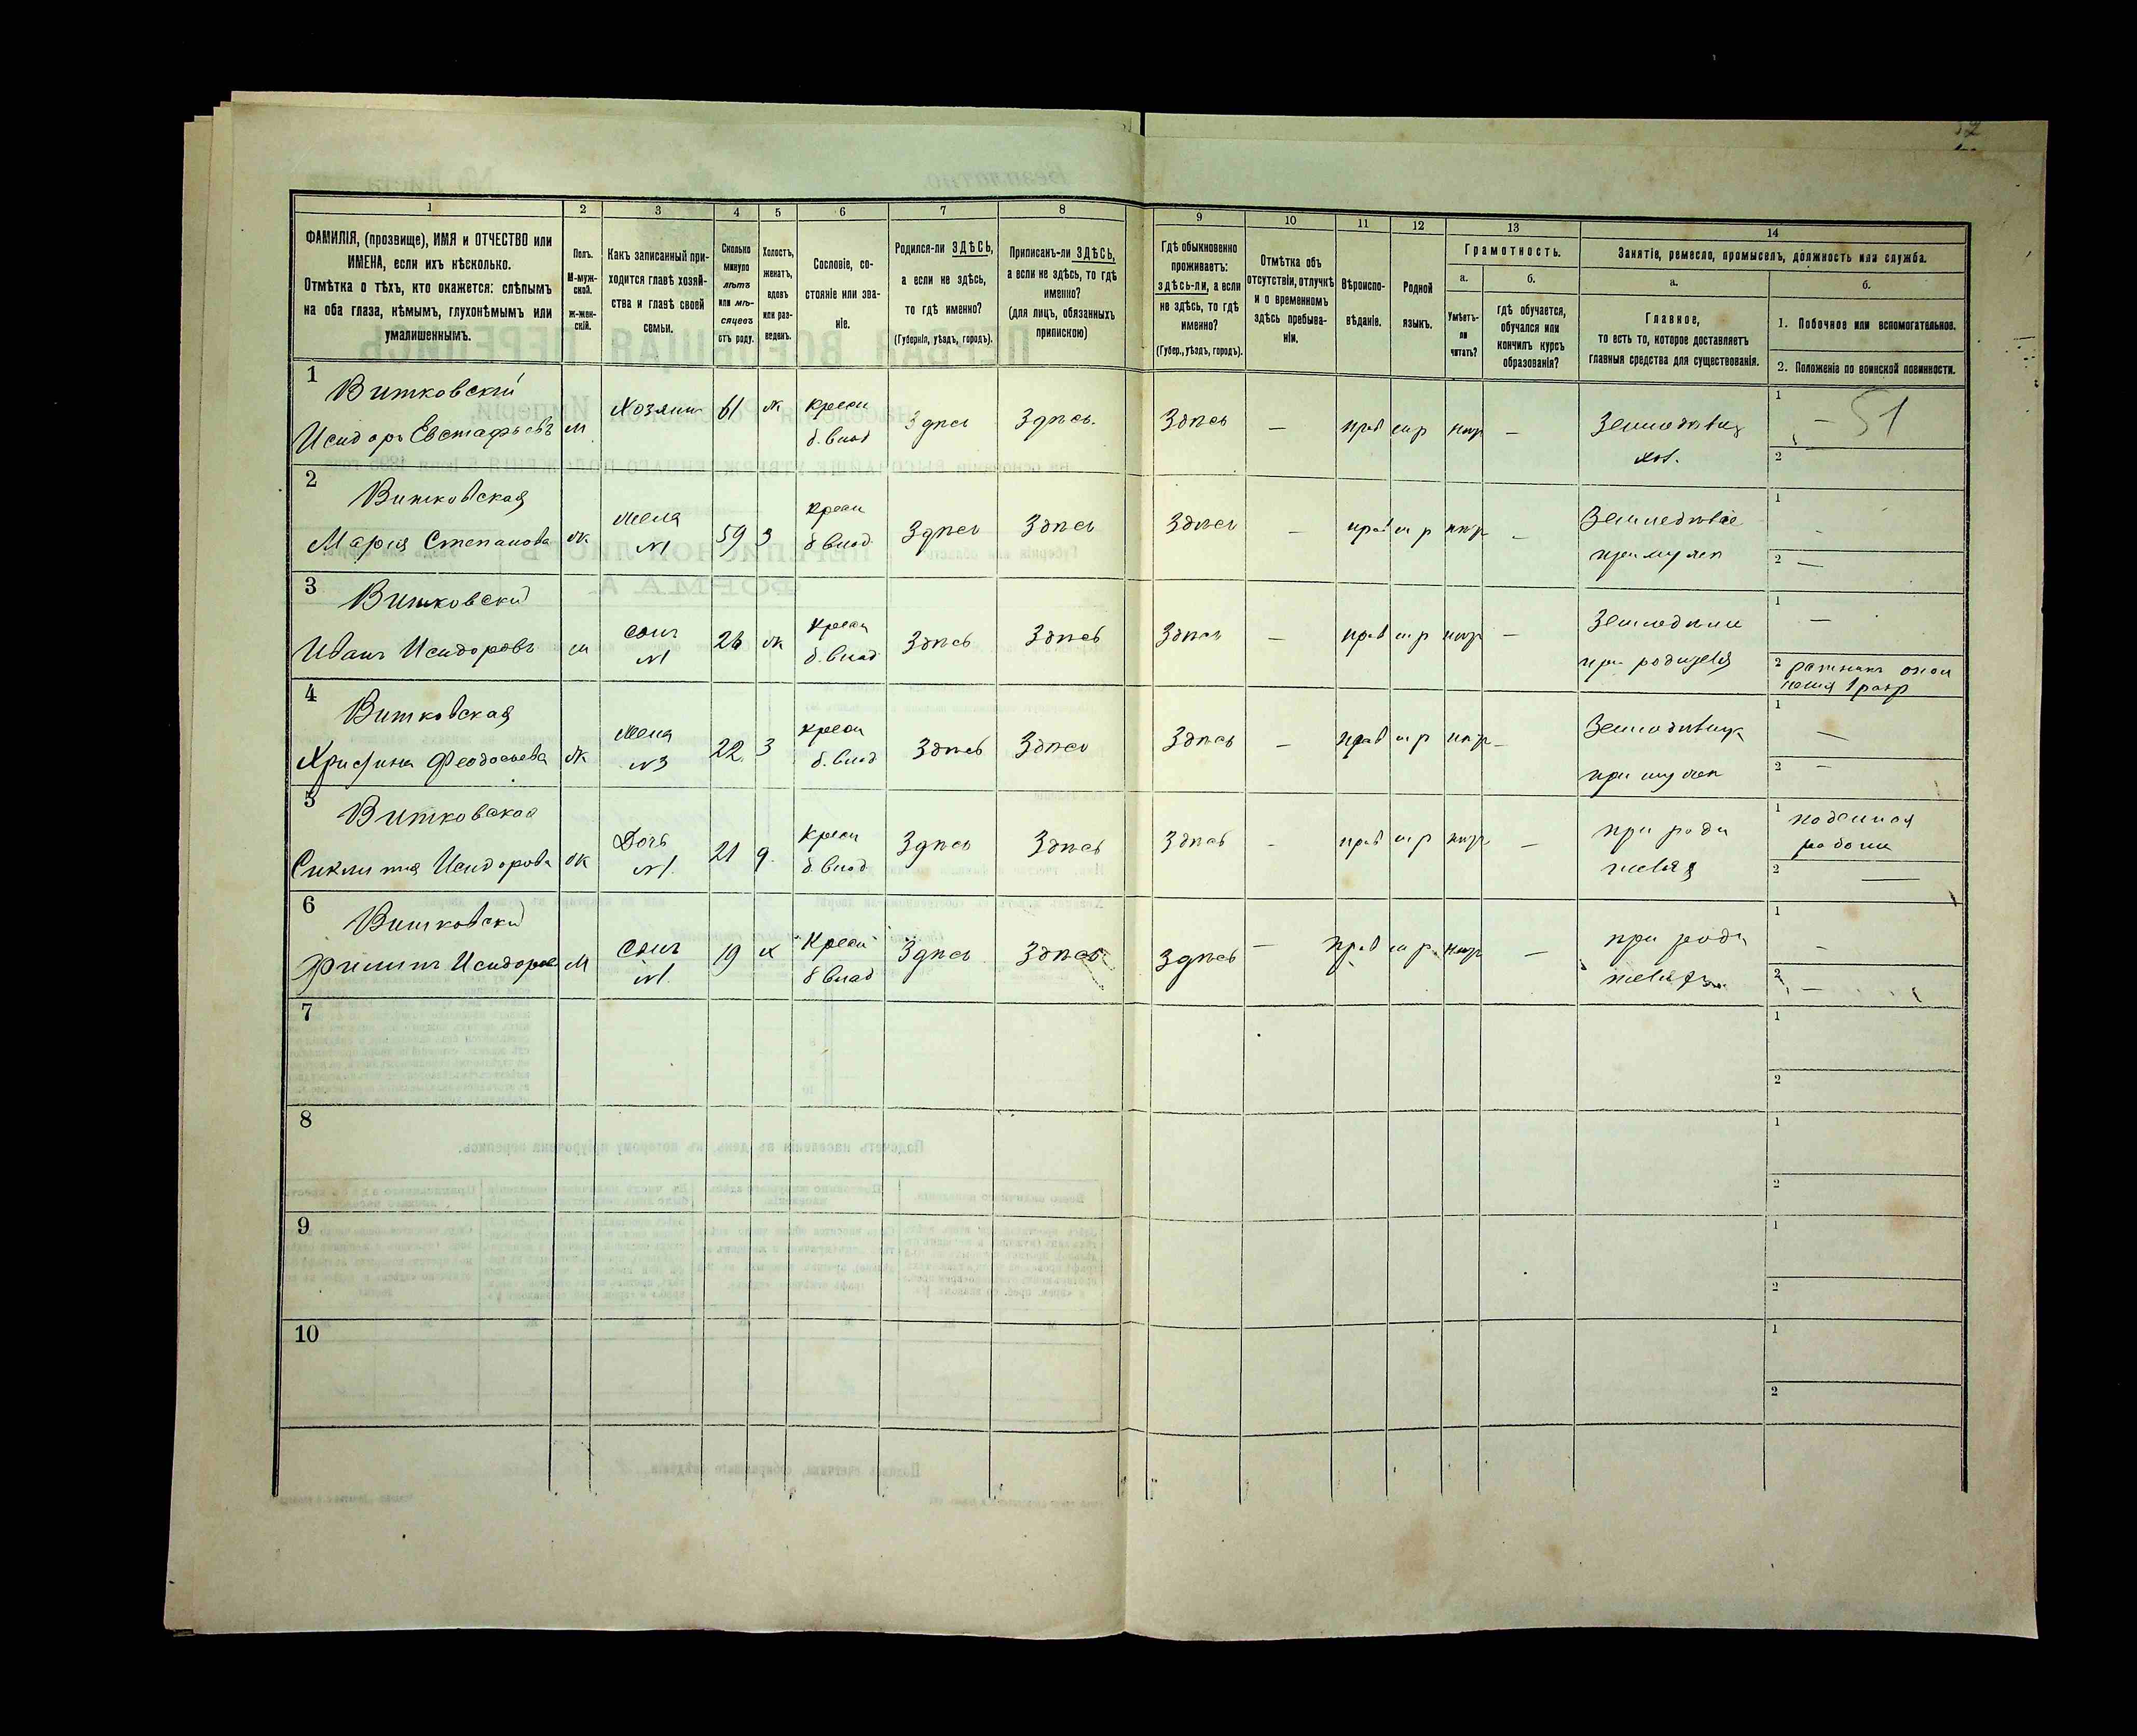 52
1 2 3 4 5 6 7 8 9 10 11 12 13 14
ФАМИЛІЯ, (прозвище), ИМЯ и ОТЧЕСТВО или
ИМЕНА, если ихъ нѣсколько.
Отмѣтка о тѣхъ, кто окажется: слѣпымъ
на оба глаза, нѣмымъ, глухонѣмымъ или
умалишеннымъ.
Полъ.
М-муж-
ской.
Ж-жен-
скій.
Какъ записанный при-
ходится главѣ хозяй-
ства и главѣ своей
семьи.
Сколько
минуло
лѣтъ
или мѣ-
сяцевъ
отъ роду.
Холостъ,
женатъ,
вдовъ
или раз-
веденъ.
Сословіе, со-
стояніе или зва-
ніе.
Родился-ли ЗДѢСЬ,
а если не здѣсь,
то гдѣ именно?
(Губернія, уѣздъ, городъ).
Приписанъ-ли ЗДѢСЬ,
а если не здѣсь, то гдѣ
именно?
(для лицъ, обязанныхъ
припискою)
Гдѣ обыкновенно
проживаетъ:
здѣсь-ли, а если
не здѣсь, то гдѣ
именно?
(Губер., уѣздъ, городъ).
Отмѣтка объ
отсутствіи, отлучкѣ
и о временномъ
здѣсь пребыва-
ніи.
Вѣроиспо-
вѣданіе.
Родной
языкъ.
Грамотность.
а.
Умѣетъ-
ли
читать?
б.
Гдѣ обучается,
обучался или
кончилъ курсъ
образованія?
Занятіе, ремесло, промыселъ, должность или служба.
а.
Главное,
то есть то, которое доставляетъ
главныя средства для существованія.
б.
1. Побочное или вспомогательное.
2. Положеніе по воинской повинности.
1
Витковский
Исидоръ Евстафьевъ м
Хозяинъ 61 ж крест
б. влад
Здпсь Здпсь. Здпсь — прав м р нтр —
Земледпвц
хоз.
1 — 51
2
2
Витковская
Мария Степанова ж
жена
№1
59 з
крест
б влад.
Здпсь Здпсь Здпсь — прав м р нтр —
Земледпвие
при мужп
1 -
2 —
3
Витковски
Иванъ Исидоровъ м
сынъ
№1
26 ж
крест
б. влад
Здпсь Здпсь Здпсь — прав м р нтр —
при родител
1 —
2 ратникъ опол
чения 1 разр
4
Витковская
Христина Феодосьева ж
жена
№3
22 з
крест
б. влад
Здпсь Здпсь Здпсь — прав м р нтр —
при мужп
1 —
2 —
5
Витковская
Сиклития Исидорова ж
Дочь
№1.
21 д.
крест
б. влад
Здпсь Здпсь Здпсь - прав м р нтр —
при роди
теляхъ
1 поденная
работа
2 —
6
Витковски
Филипъ Исидоров м
сынъ
№1.
19 х
крест
б влад
Здпсь Здпсь Здпсь — прав м р. нтр —
при роди
теляхъ
1 -
2 —
7
1
2
8
1
2
9
1
2
10
1
2